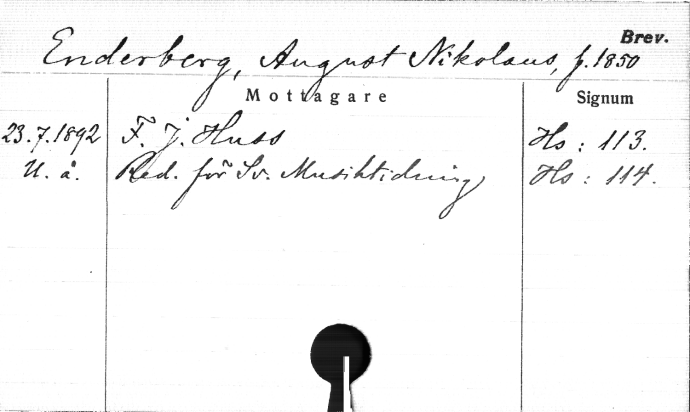 Brev.
Enderberg, August Nikolaus, f. 1850
Mottagare Signum
23.7.1892 F. J. Huss Hs : 113.
U. å. Red. för Sv. Musiktidning Hs : 114.